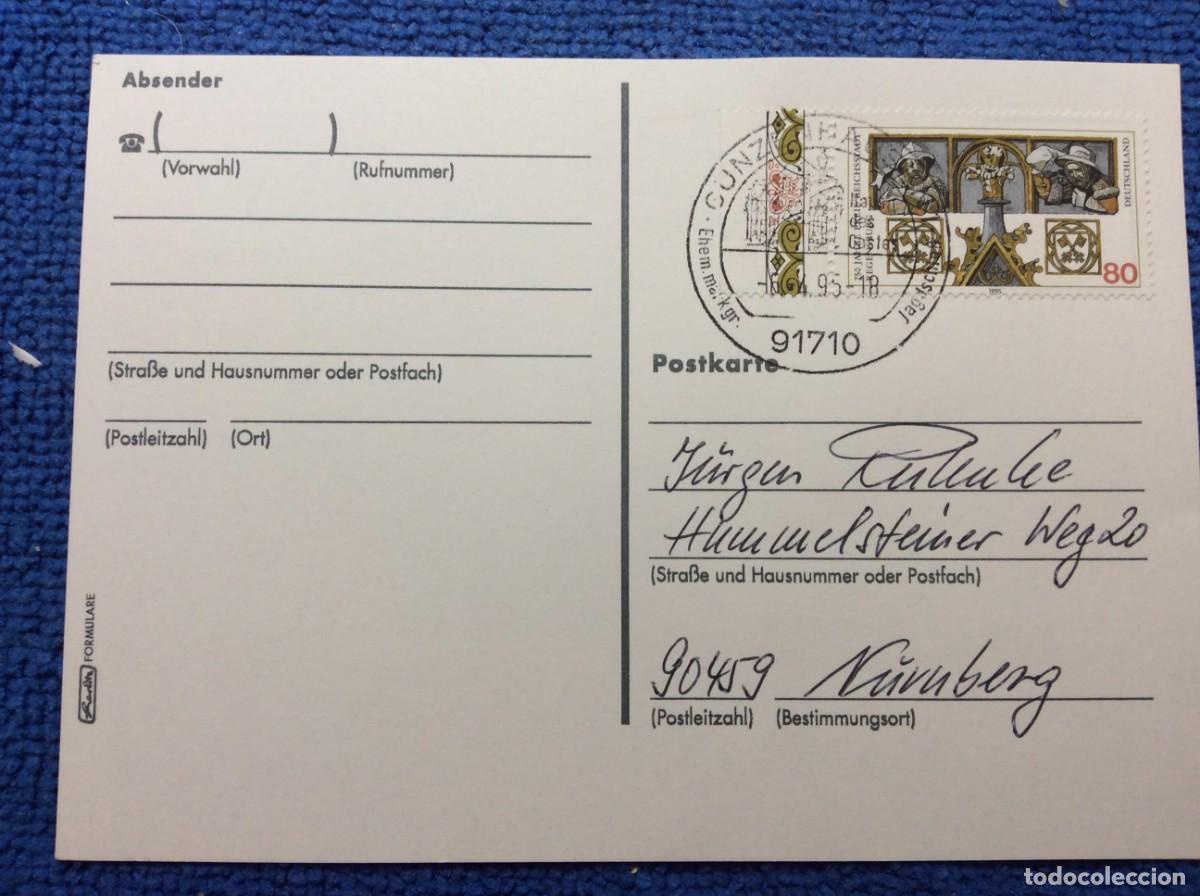 Absender
(Vorwahl) (Rufnummer)
(Straße und Hausnummer oder Postfach)
(Postleitzahl) (Ort)
Herlitz FORMULARE
GUNZ
Ehem. markgr.
Jagdschl
-6. 4.95-18
91710
REICHSSTADT
DEUTSCHLAND
80
1995
Postkarte
Jürgen
Hummelsteiner Weg 20
(Straße und Hausnummer oder Postfach)
90459 Nürnberg
(Postleitzahl) (Bestimmungsort)
todocoleccion